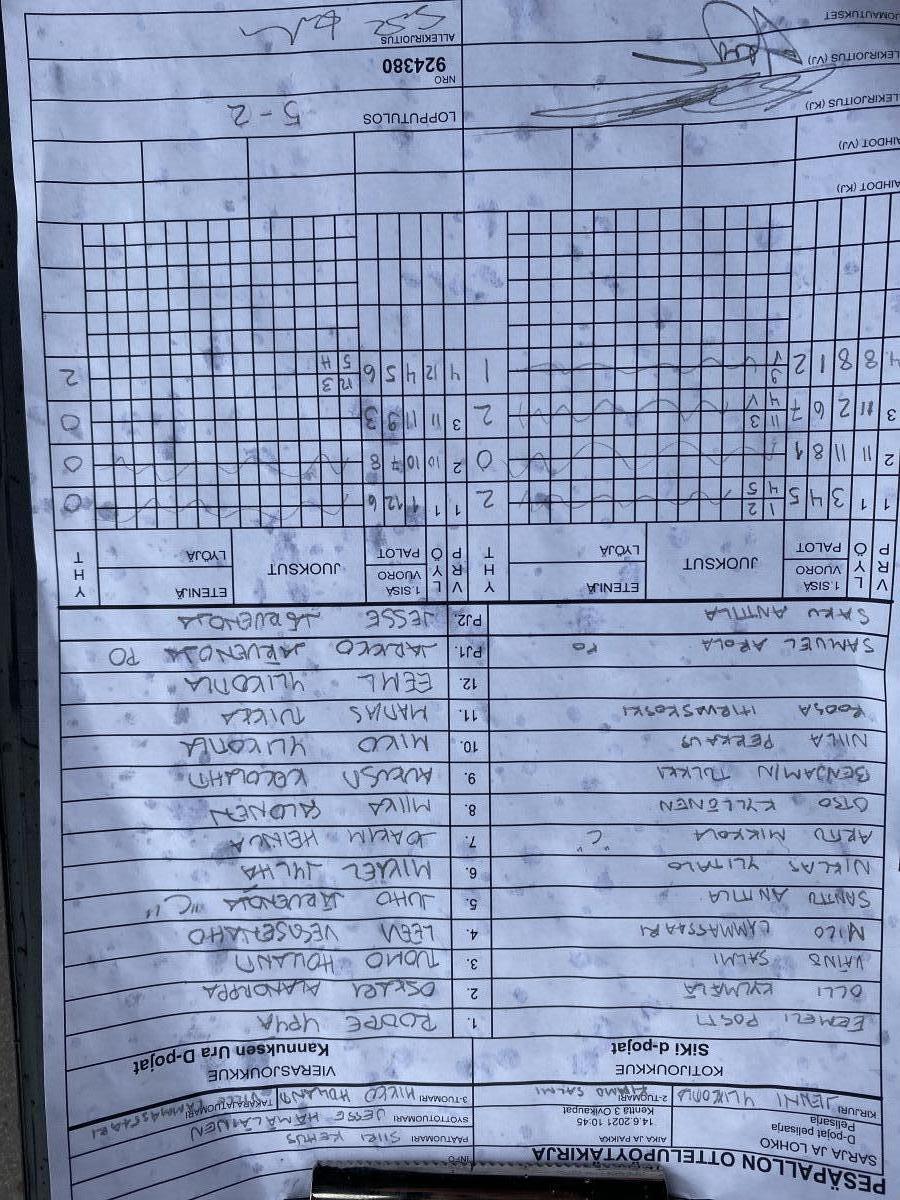 PESÄPALLON OTTELUPÖYTÄKIRJA
INFO
SARJA JA LOHKO
D-pojat pelisarja
Pelisarja
AIKA JA PAIKKA
14.6.2021 10:45
Kenttä 3 Ovikaupat
PÄÄTUOMARI SIIRI KEHUS
SYÖTTÖTUOMARI JESSE HÄMÄLÄINEN
KIRJURI JENNI YLIKOTILA
2-TUOMARI SALMI
3-TUOMARI MIKKO HOULANTI
TAKARAJATUOMARI LAMMASSAARI
KOTIJOUKKUE
SiKi d-pojat
VIERASJOUKKUE
Kannuksen Ura D-pojat
EEMELI POSTI 1. ROOPE YPYÄ
OLLI KYLMÄLÄ 2. OSKARI ALANORPPA
VÄINÖ SALMI 3. TUOMO HOULANTI
MICO LAMMASSAARI 4. LEEVI
SANTTU ANTTILA 5. JUHO JÄRVENOJA "C"
NIKLAS YLITALO 6. MIKAEL JYLHÄ
ARTTU MIKKOLA "C" 7. JOAKIM
OTSO KYLLÖNEN 8. MIIKA SALONEN
BENJAMIN TULKKI 9. AUKUSTI
NINLA PERKAUS 10. MIKO YLIKOTILA
ROOSA HIRVASKOSKI 11. MATIAS
12. EEMIL YLIKOTILA
SAMUEL AROLA PO PJ1. JARKKO JÄRVENOJA PO
SAKU ANTTILA PJ2. JESSE JÄRVENOJA
VRP LYÖ 1.SISÄ VUORO PALOT JUOKSUT ETENIJÄ LYÖJÄ YHT VRP LYÖ 1.SISÄ VUORO PALOT JUOKSUT ETENIJÄ LYÖJÄ YHT
1 1 3 4 5 1/4 2/5 2 1 1 1 12 6 0
2 11 11 8 1 0 2 10 10 7 8 0
3 11 2 6 7 11/4 3/V 2 3 11 11 9 3 0
4 8 8 1 2 9/V 1 4 12 4 5 6 12/5 3/H 2
VAIHDOT (KJ)
VAIHDOT (VJ)
ALLEKIRJOITUS (KJ)
LOPPUTULOS 5-2
ALLEKIRJOITUS (VJ)
NRO
924380
HUOMAUTUKSET
ALLEKIRJOITUS